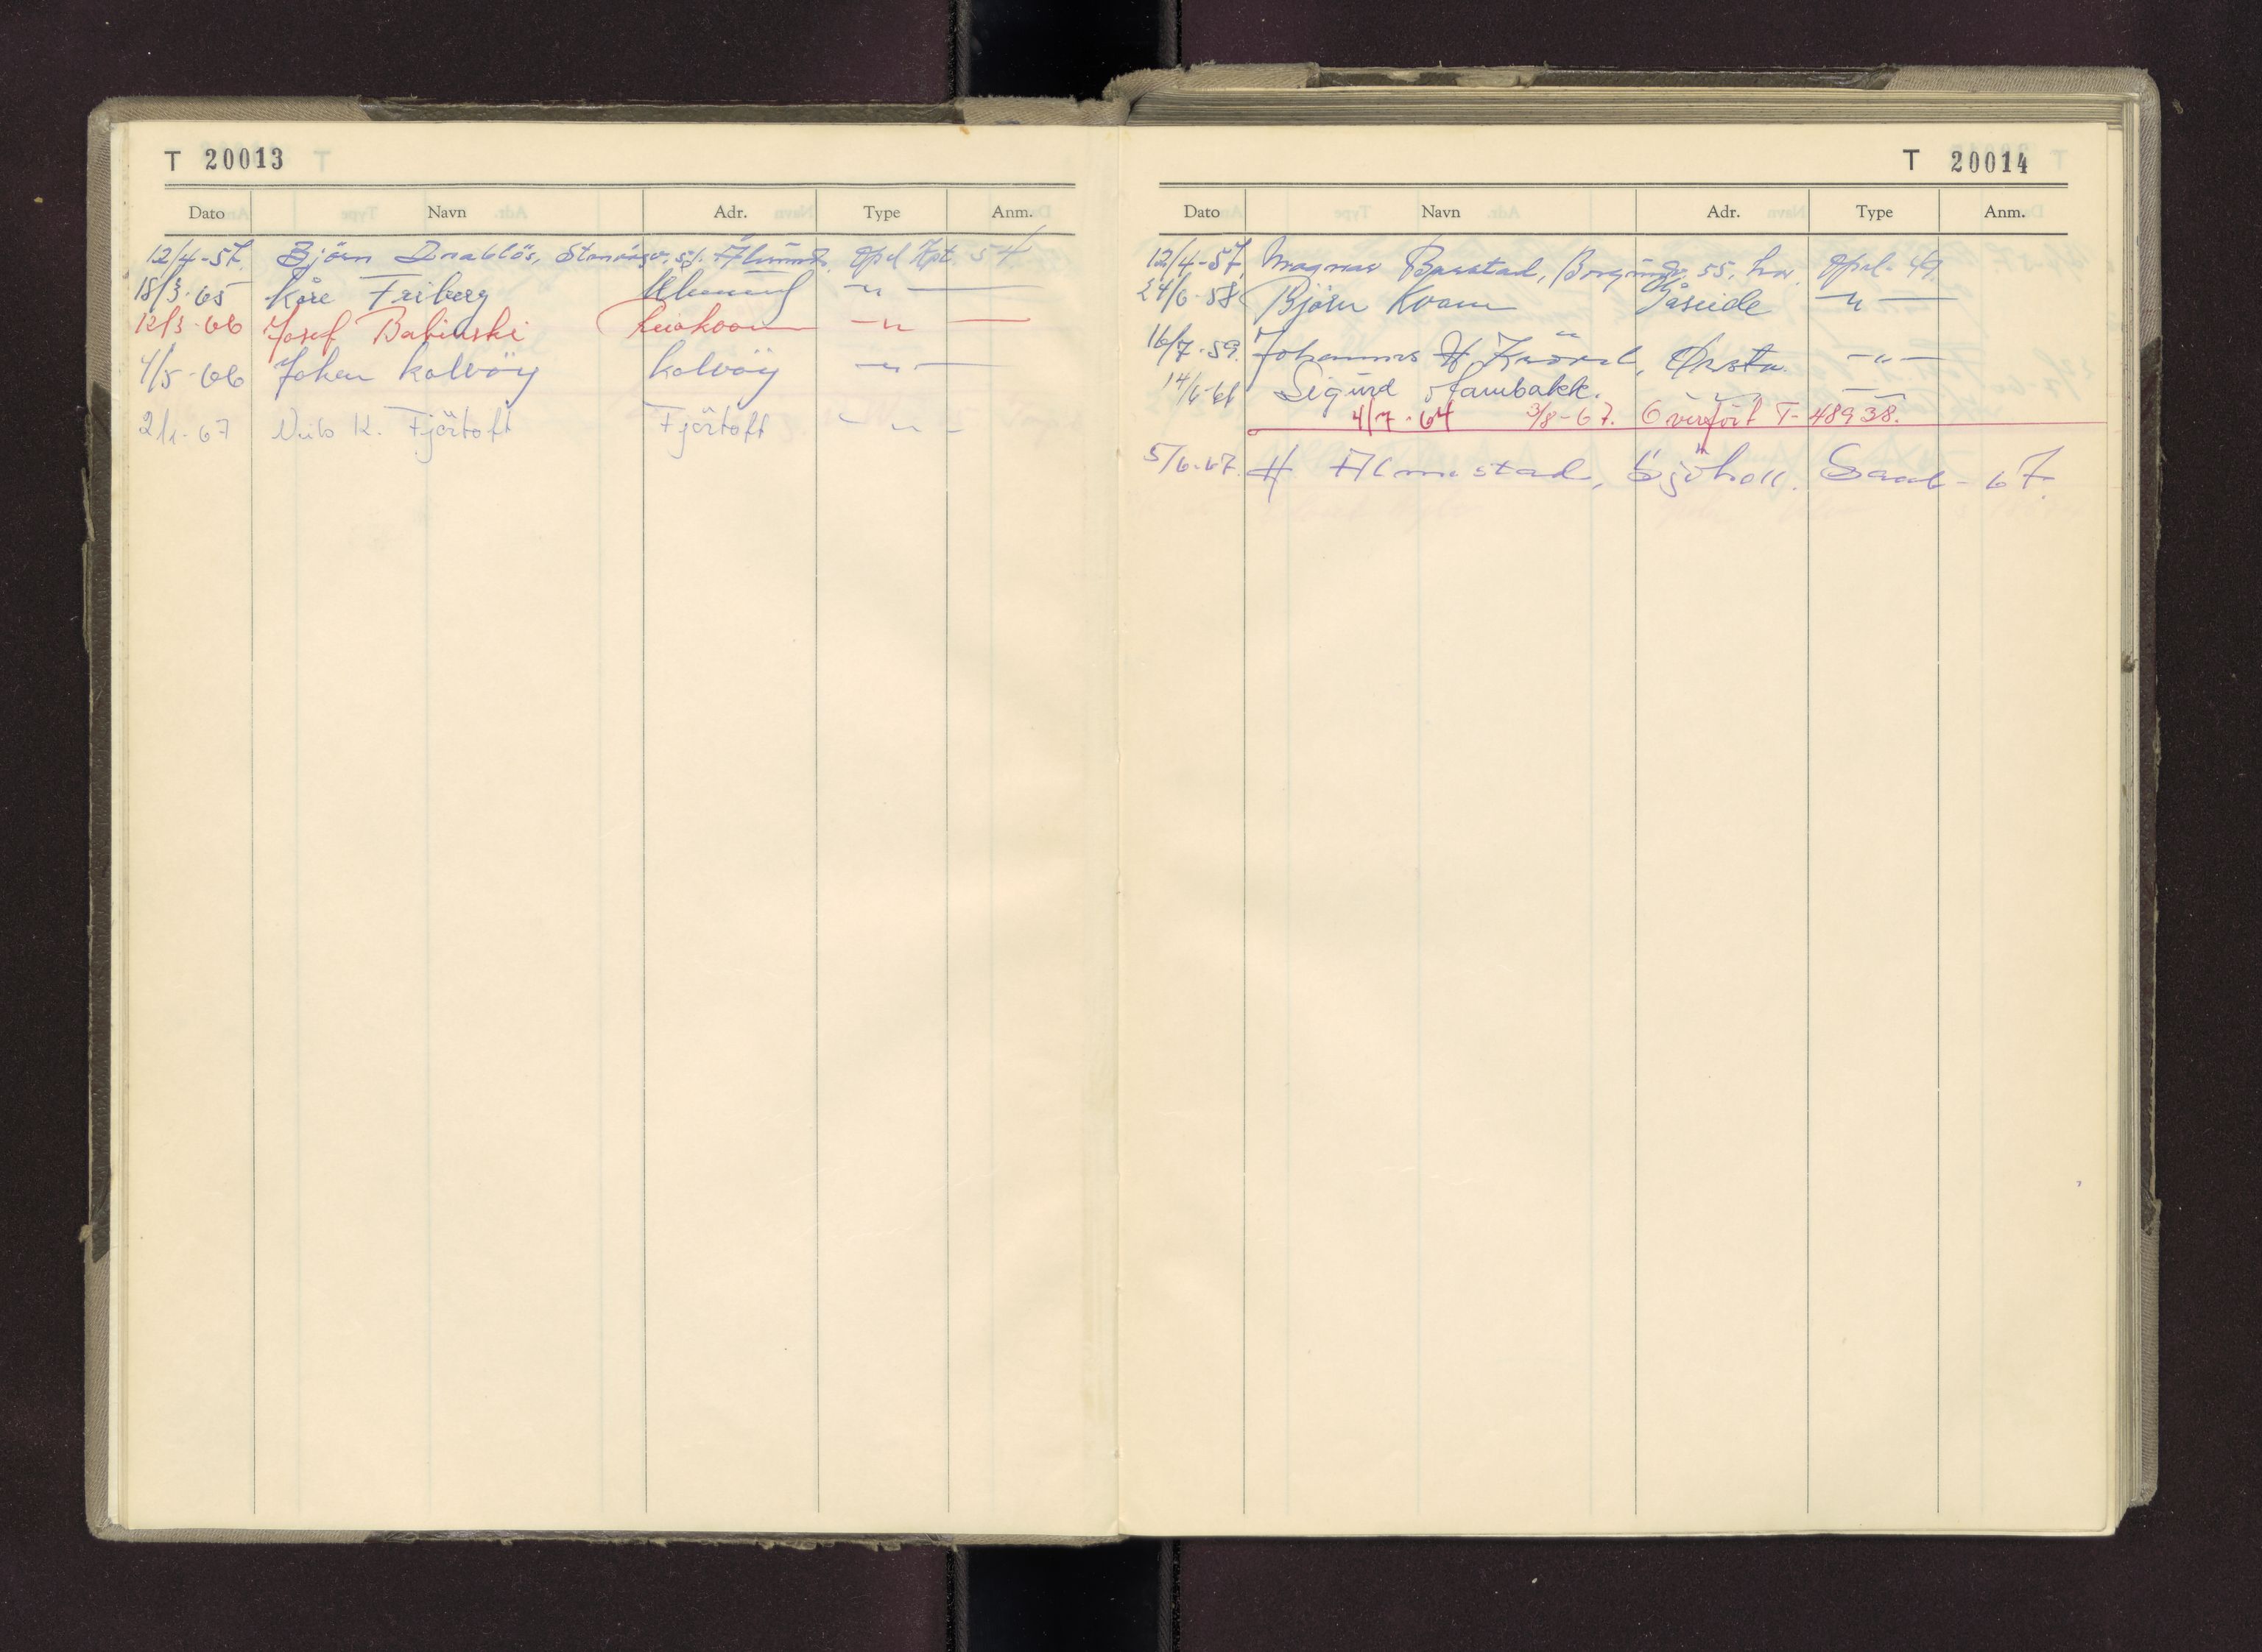 T 20013
Dato Navn Adr. Type Anm.
12/4-57. Björn Drabløs, 51. Ålesund. Opel Kpt 54
18/3-65 Kåre Friberg Ålesund -"-
12/3-66 Josef Babinski -"-
4/5-66 Johan Kalvöy Kalvöy -"-
2/1-67 Nils K. Fjörtoft Fjörtoft -"-
T 20014
Dato Navn Adr. Type Anm.
12/4-57, Magnus Baastad, Borgundv. 55, her. Opel-49.
24/6-58 Björn Kvam Gåseide -"-
16/7-59. Johannes H Ørsta. -"-
14/6-61 Sigurd Hambakk.
4/7-64 3/8-67. Överfört T-48938.
5/6-67. H Almestad, Sjöholt. Saab-67.